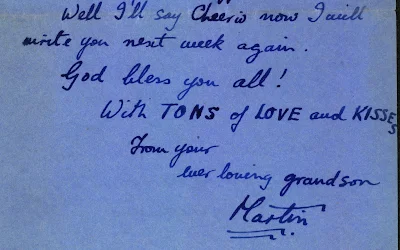 Well I'll say Cheerio now I will
write you next week again.
God bless you all!
With TONS of LOVE and KISSES
From your
ever loving grandson
Martin